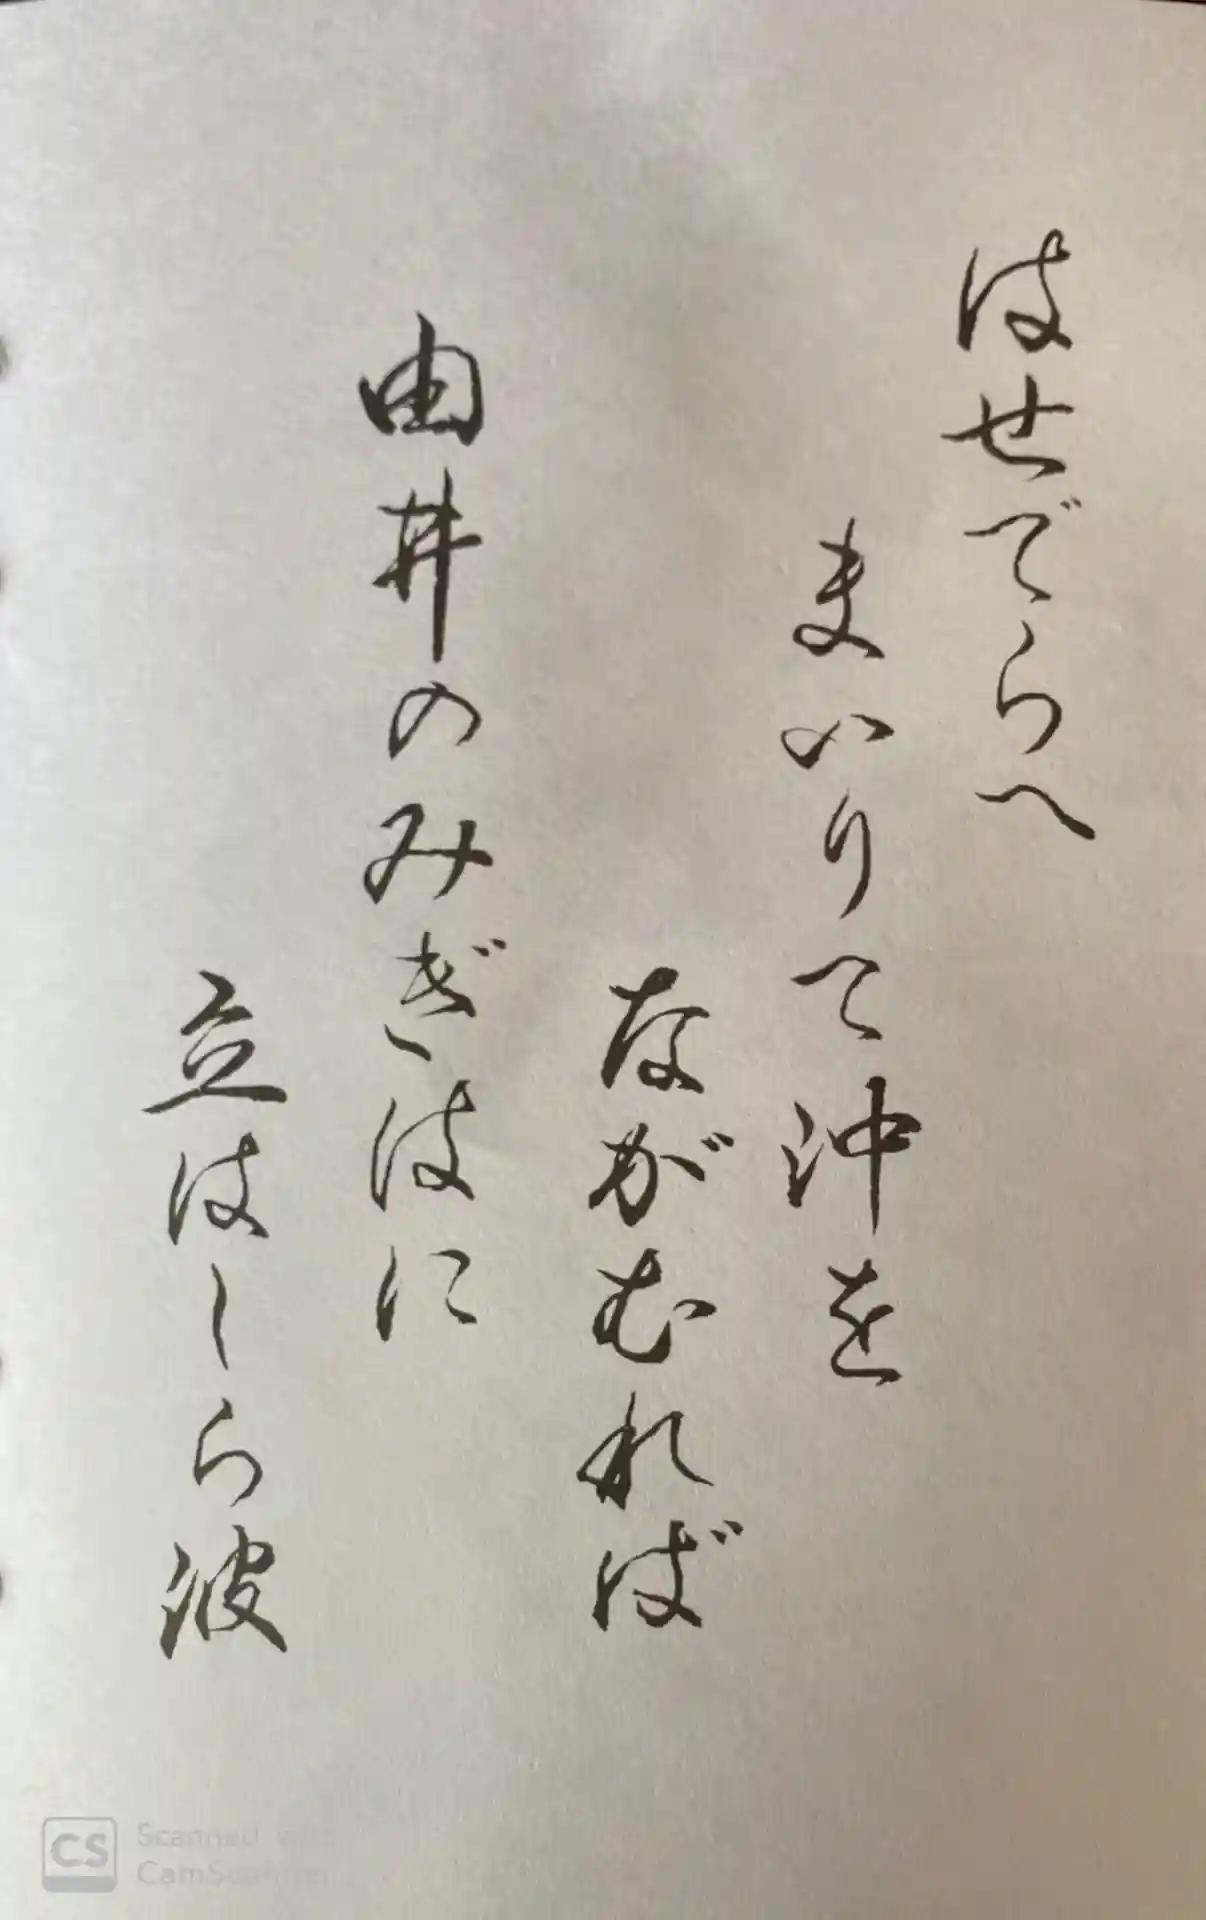 はせでらへ
まいりて沖を
ながむれば
由井のみぎはに
立はしら波
CS
Scanned with
CamScanner